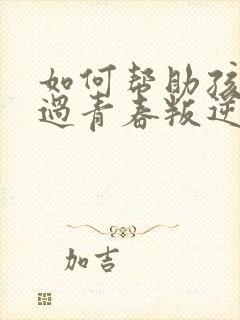 如何帮助孩
过青春叛逆
加吉